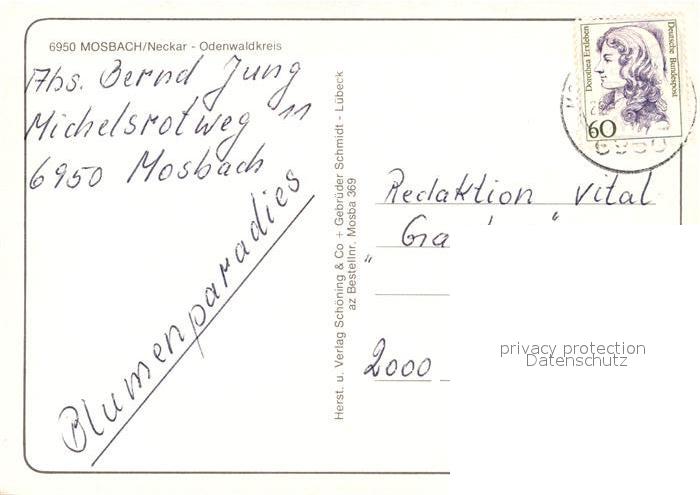 6950 MOSBACH/Neckar - Odenwaldkreis
Abs. Bernd Jung
Michelsrotweg 11
6950 Mosbach
Blumenparadies
Herst. u. Verlag Schöning & Co + Gebrüder Schmidt - Lübeck
az Bestellnr. Mosba 369
Dorothea Erxleben
Deutsche Bundespost
60
6950
Redaktion vital
2000
privacy protection
Datenschutz